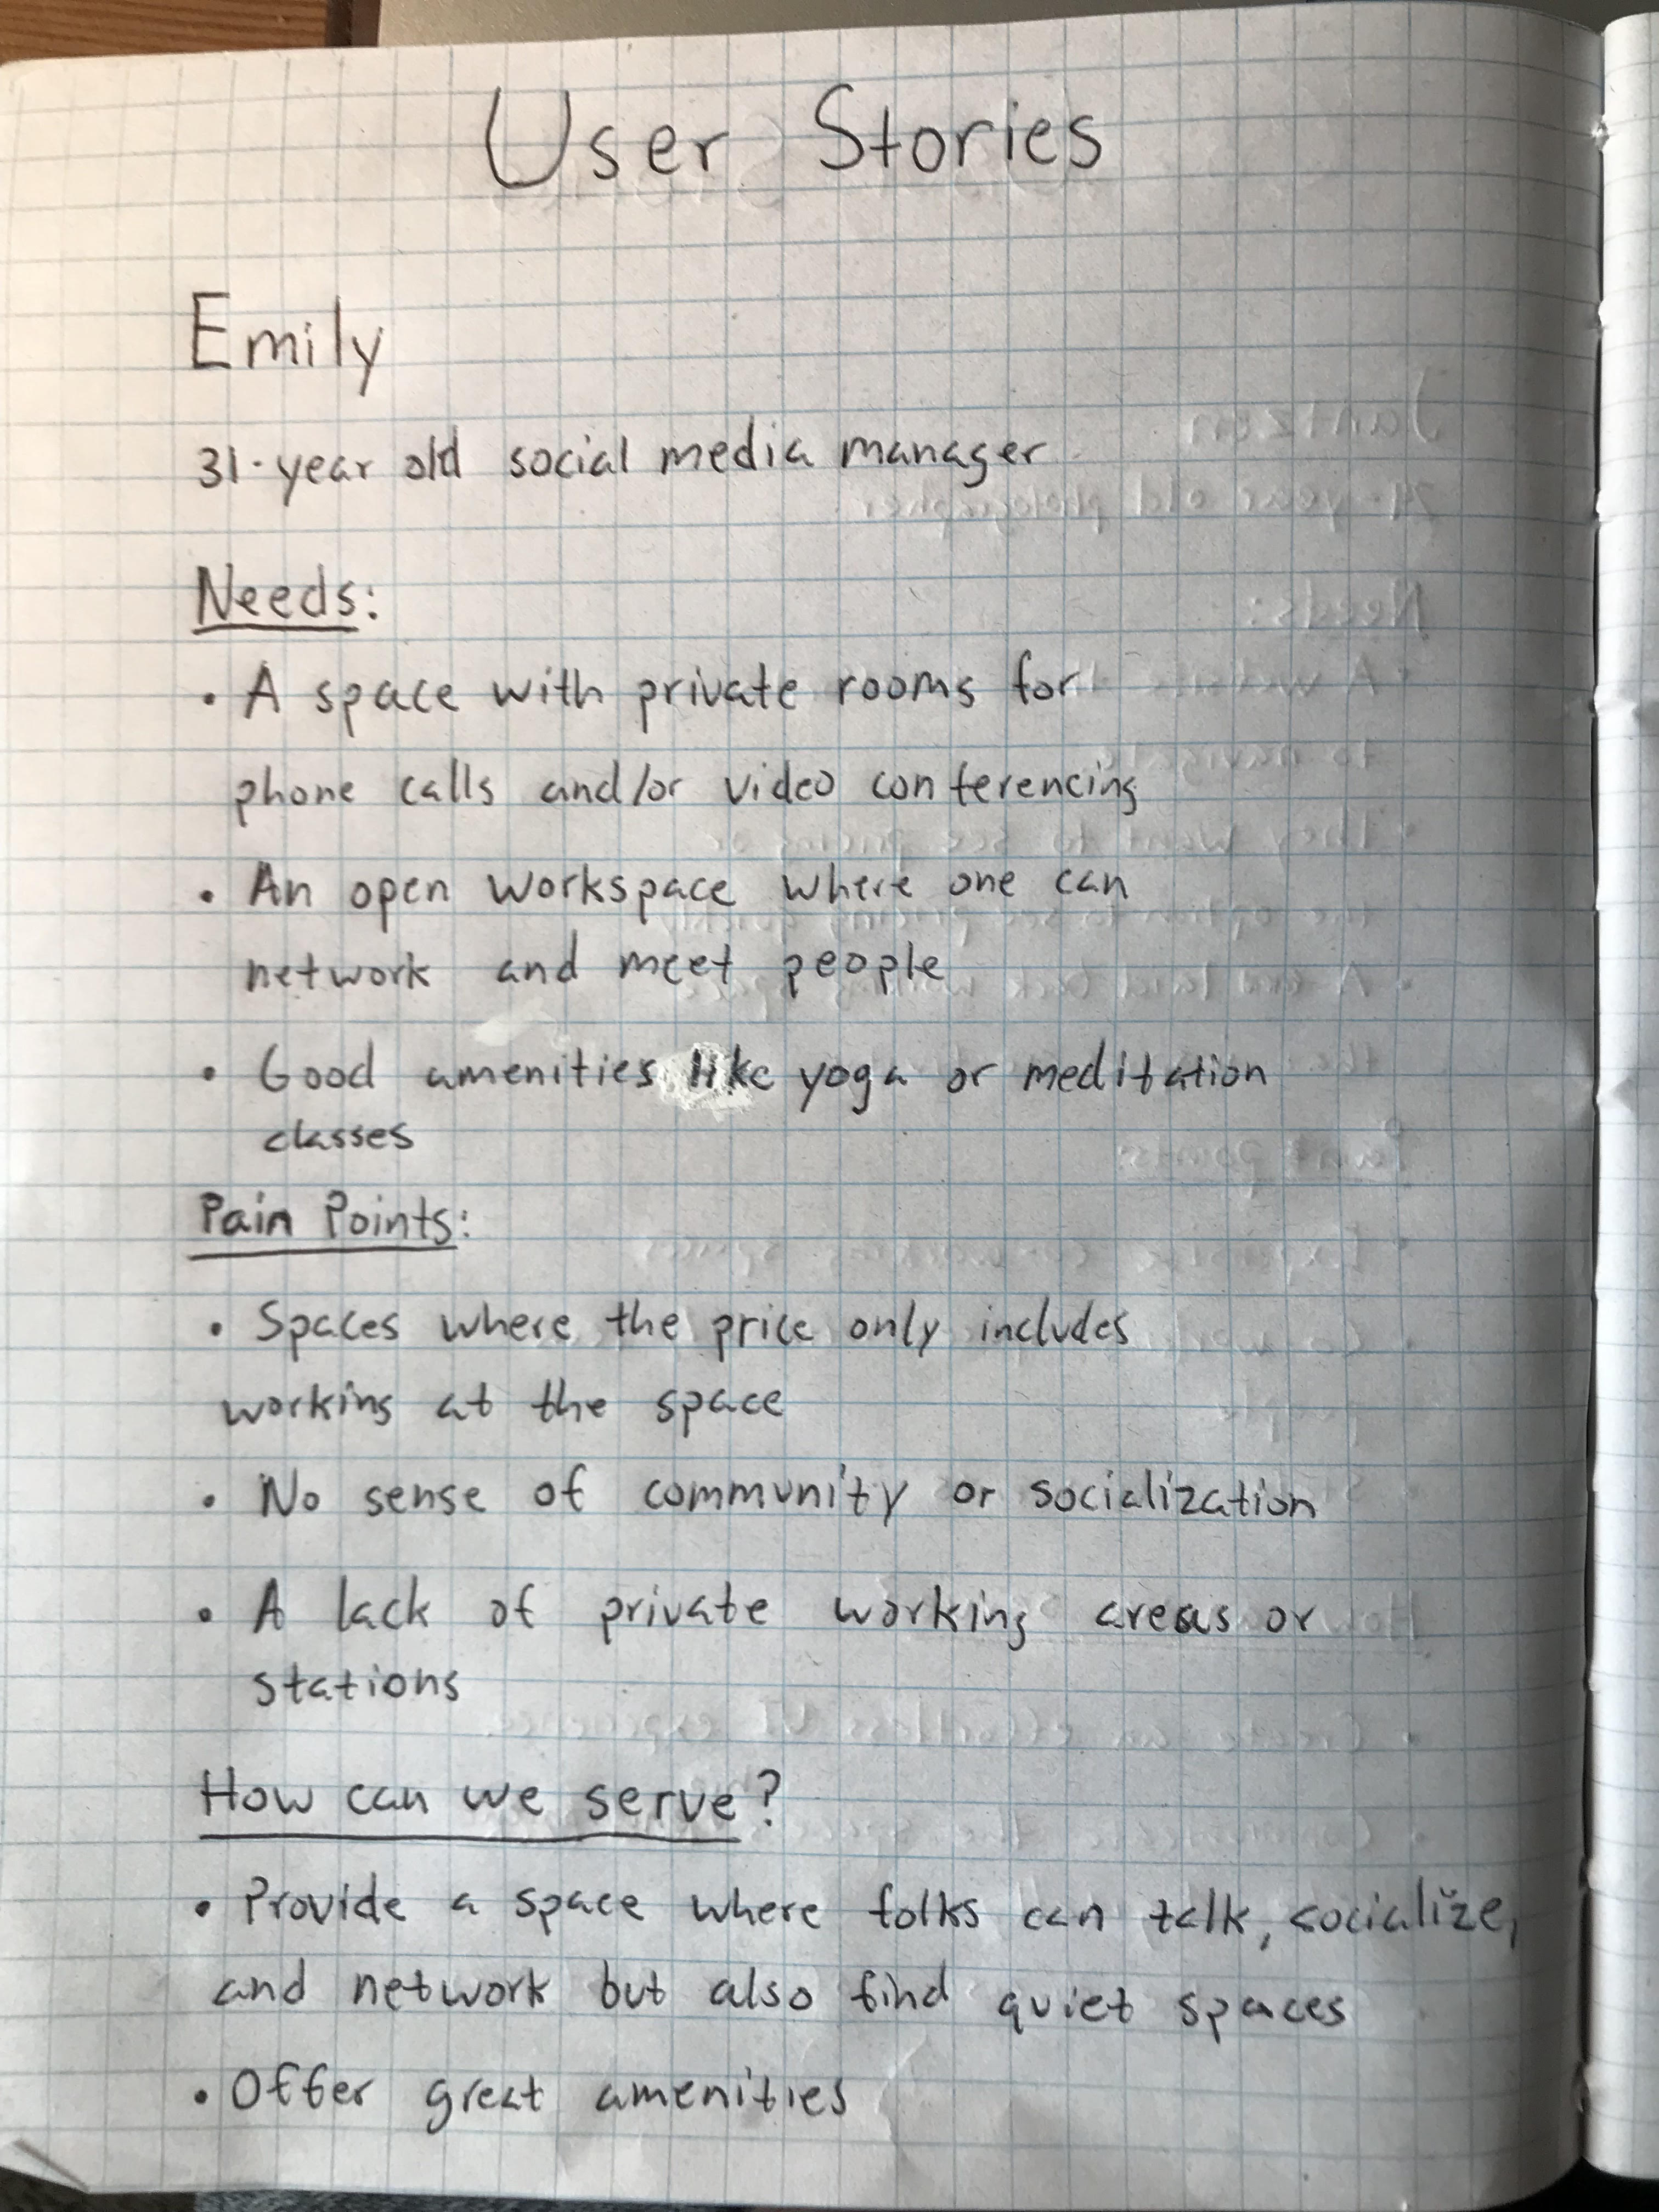 User Stories
Emily
31-year old social media manager
Needs:
• A space with private rooms for
phone calls and/or video conferencing
• An open workspace where one can
network and meet people
• Good amenities like yoga or meditation
classes
Pain Points:
• Spaces where the price only includes
working at the space
• No sense of community or socialization
• A lack of private working areas or
stations
How can we serve?
• Provide a space where folks can talk, socialize,
and network but also find quiet spaces
• Offer great amenities